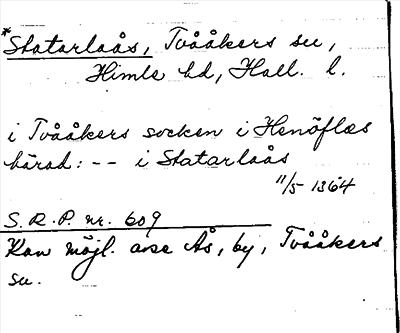 *Statarlaås, Tvååkers sn,
Himle hd, Hall. l.
i Tvååkers socken i Henöflæs
härad: -- i Statarlaås
11/5 1364
S.R.P. nr. 609
Kan möjl. avse Ås, by, Tvååkers
sn.